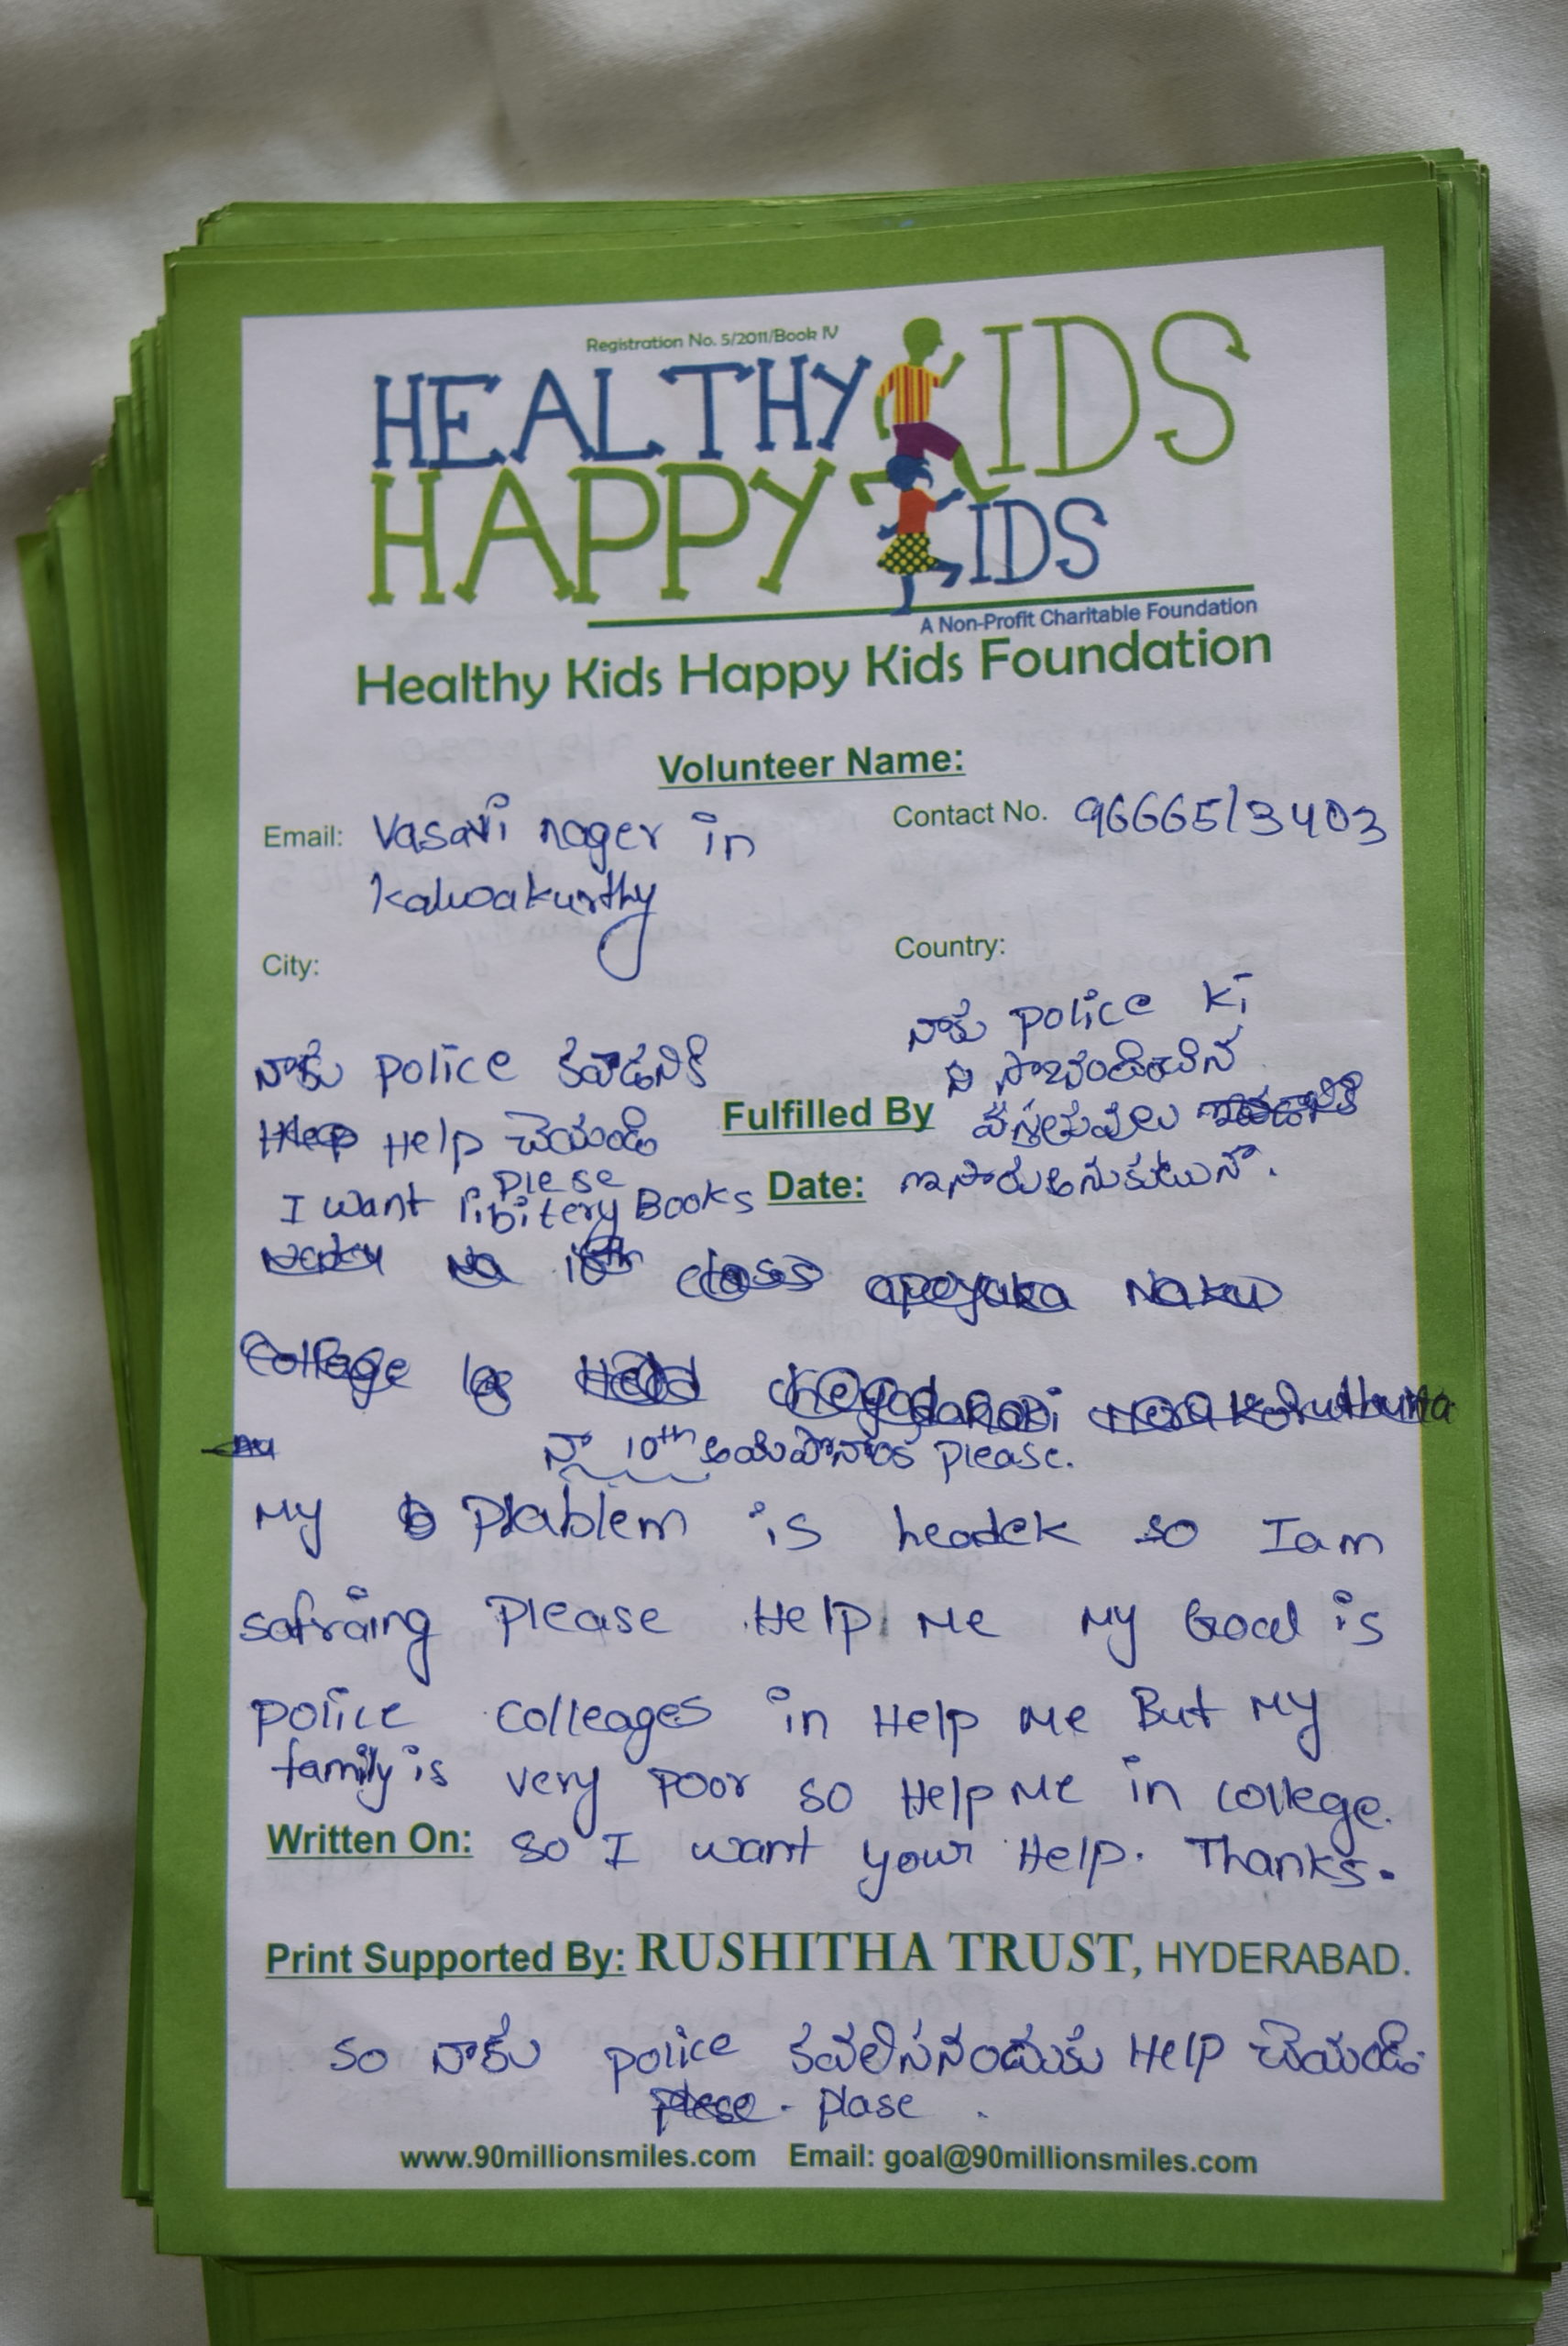 Registration No. 5/2011/Book IV
HEALTHY KIDS
HAPPY KIDS
A Non-Profit Charitable Foundation
Healthy Kids Happy Kids Foundation
Volunteer Name:
Email: Vasavi nager in
Kalwakurthy
Contact No. 9666513403
City:
Country:
నాకు police కవాడనికి
Help చెయండి
plese
I want libitery Books
నాకు police ki
Fulfilled By
Date:
నా 10th please.
My Plablem is headek so Iam
safraing Please Help Me My Goal is
police colleages in Help Me But My
family is very Poor so Help Me in college.
Written On: so I want your Help. Thanks.
Print Supported By: RUSHITHA TRUST, HYDERABAD.
so నాకు police కవలిసినందుకు Help చెయండి
plase
www.90millionsmiles.com Email: goal@90millionsmiles.com